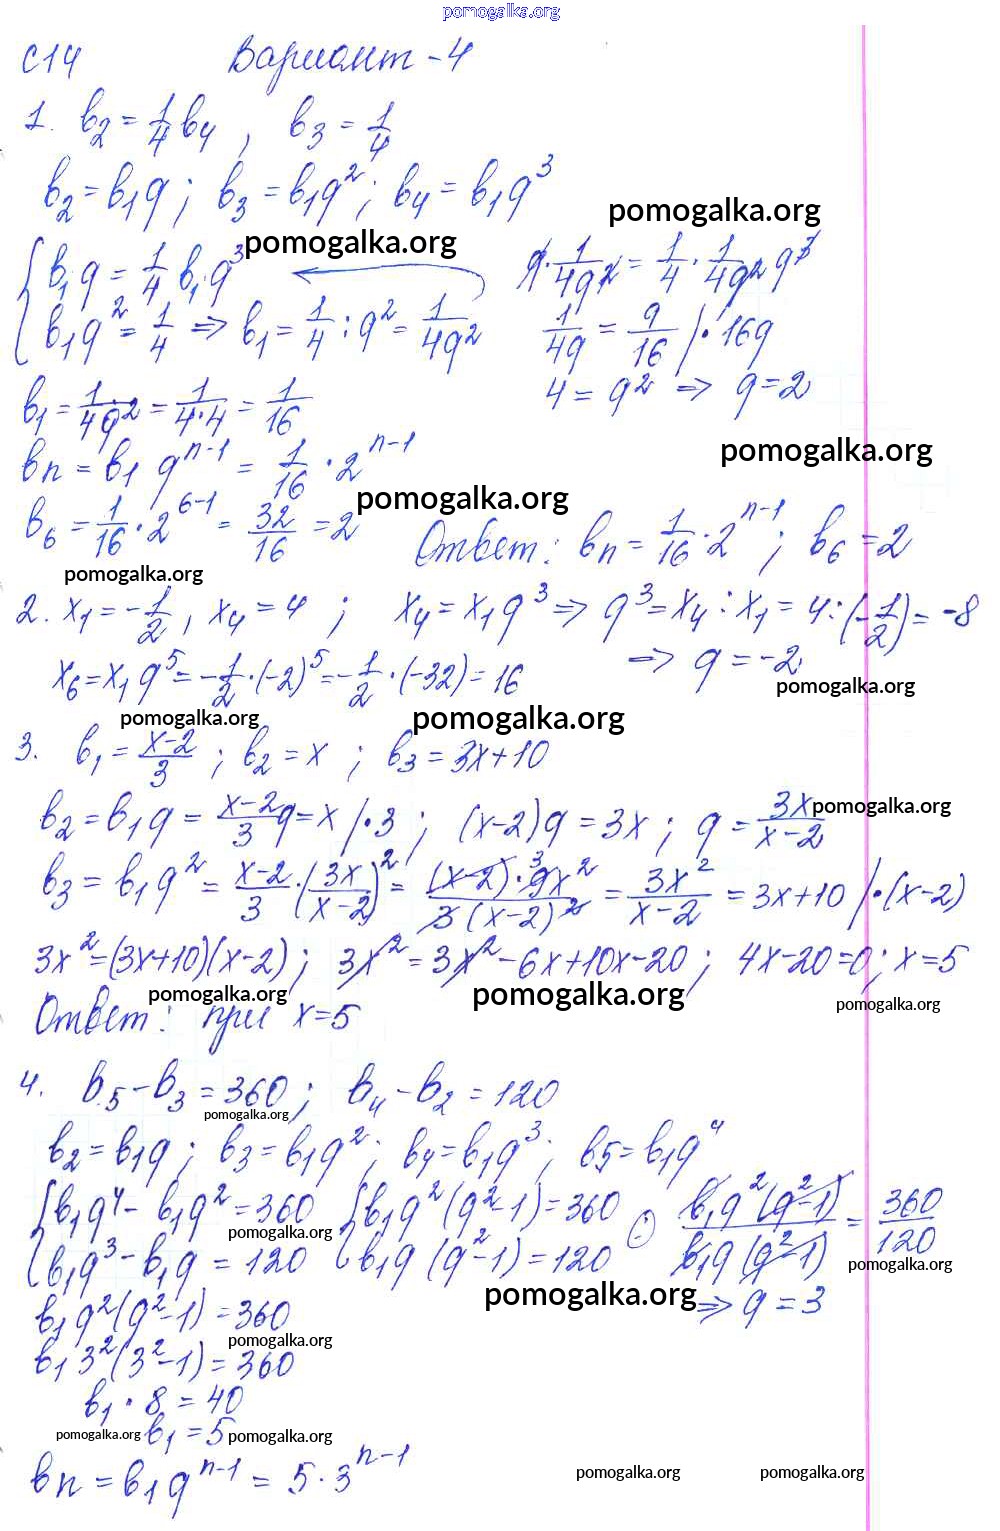 pomogalka.org
С14 Вариант-4
1. b₂ = 1/4 b₄ , b₃ = 1/4
b₂ = b₁q ; b₃ = b₁q² ; b₄ = b₁q³
pomogalka.org
pomogalka.org
{ b₁q = 1/4 b₁q³ q · 1/4q² = 1/4 · 1/4q² q³
b₁q² = 1/4 => b₁ = 1/4 : q² = 1/4q² 1/4q = q/16 | · 16q
4 = q² => q = 2
b₁ = 1/4q² = 1/4·4 = 1/16
pomogalka.org
bn = b₁ q^(n-1) = 1/16 · 2^(n-1)
pomogalka.org
b₆ = 1/16 · 2^(6-1) = 32/16 = 2 Ответ: bn = 1/16 · 2^(n-1) ; b₆ = 2
pomogalka.org
2. x₁ = -1/2 , x₄ = 4 ; x₄ = x₁q³ => q³ = x₄ : x₁ = 4 : (-1/2) = -8
=> q = -2
x₆ = x₁q⁵ = -1/2 · (-2)⁵ = -1/2 · (-32) = 16
pomogalka.org
pomogalka.org pomogalka.org
3. b₁ = x-2/3 ; b₂ = x ; b₃ = 3x+10
b₂ = b₁q = x-2/3 q = x | · 3 ; (x-2)q = 3x ; q = 3x/x-2
pomogalka.org
b₃ = b₁q² = x-2/3 · (3x/x-2)² = (x-2) · 9x²/3(x-2)² = 3x²/x-2 = 3x+10 | · (x-2)
3x² = (3x+10)(x-2) ; 3x² = 3x² - 6x + 10x - 20 ; 4x - 20 = 0 ; x = 5
pomogalka.org pomogalka.org pomogalka.org
Ответ: при x = 5
4. b₅ - b₃ = 360 ; b₄ - b₂ = 120
pomogalka.org
b₂ = b₁q ; b₃ = b₁q² ; b₄ = b₁q³ ; b5 = b₁q⁴
{ b₁q⁴ - b₁q² = 360 { b₁q²(q²-1) = 360 (:) b₁q²(q²-1)/b₁q(q²-1) = 360/120
pomogalka.org
b₁q³ - b₁q = 120 b₁q(q²-1) = 120
pomogalka.org
pomogalka.org
=> q = 3
b₁q²(q²-1) = 360
pomogalka.org
b₁ 3²(3²-1) = 360
b₁ · 8 = 40
pomogalka.org b₁ = 5 pomogalka.org
bn = b₁q^(n-1) = 5 · 3^(n-1)
pomogalka.org pomogalka.org